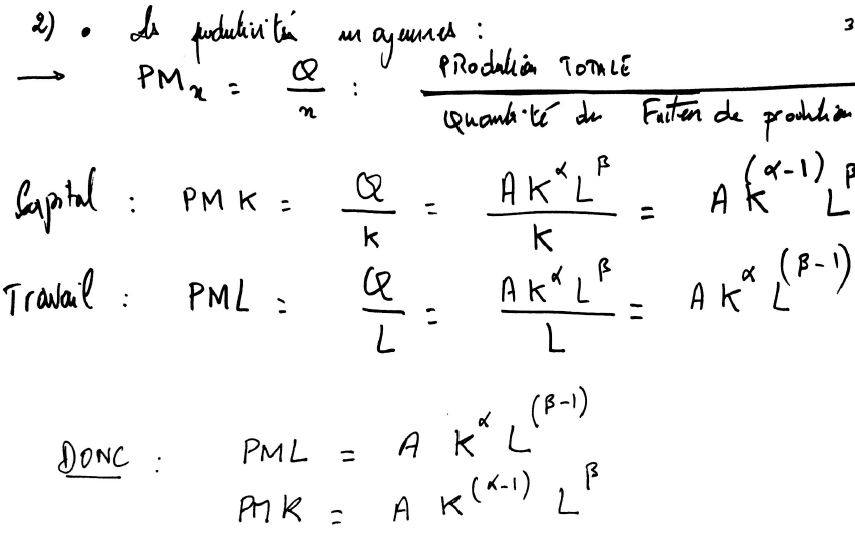 2) • Les productivités moyennes : 3
→ PMx = Q/x : PRoduction TOTALE / Quantité du Facteur de production
Capital : PMK = Q/K = AK^α L^β / K = A K^(α-1) L^β
Travail : PML = Q/L = AK^α L^β / L = A K^α L^(β-1)
DONC : PML = A K^α L^(β-1)
PMK = A K^(α-1) L^β